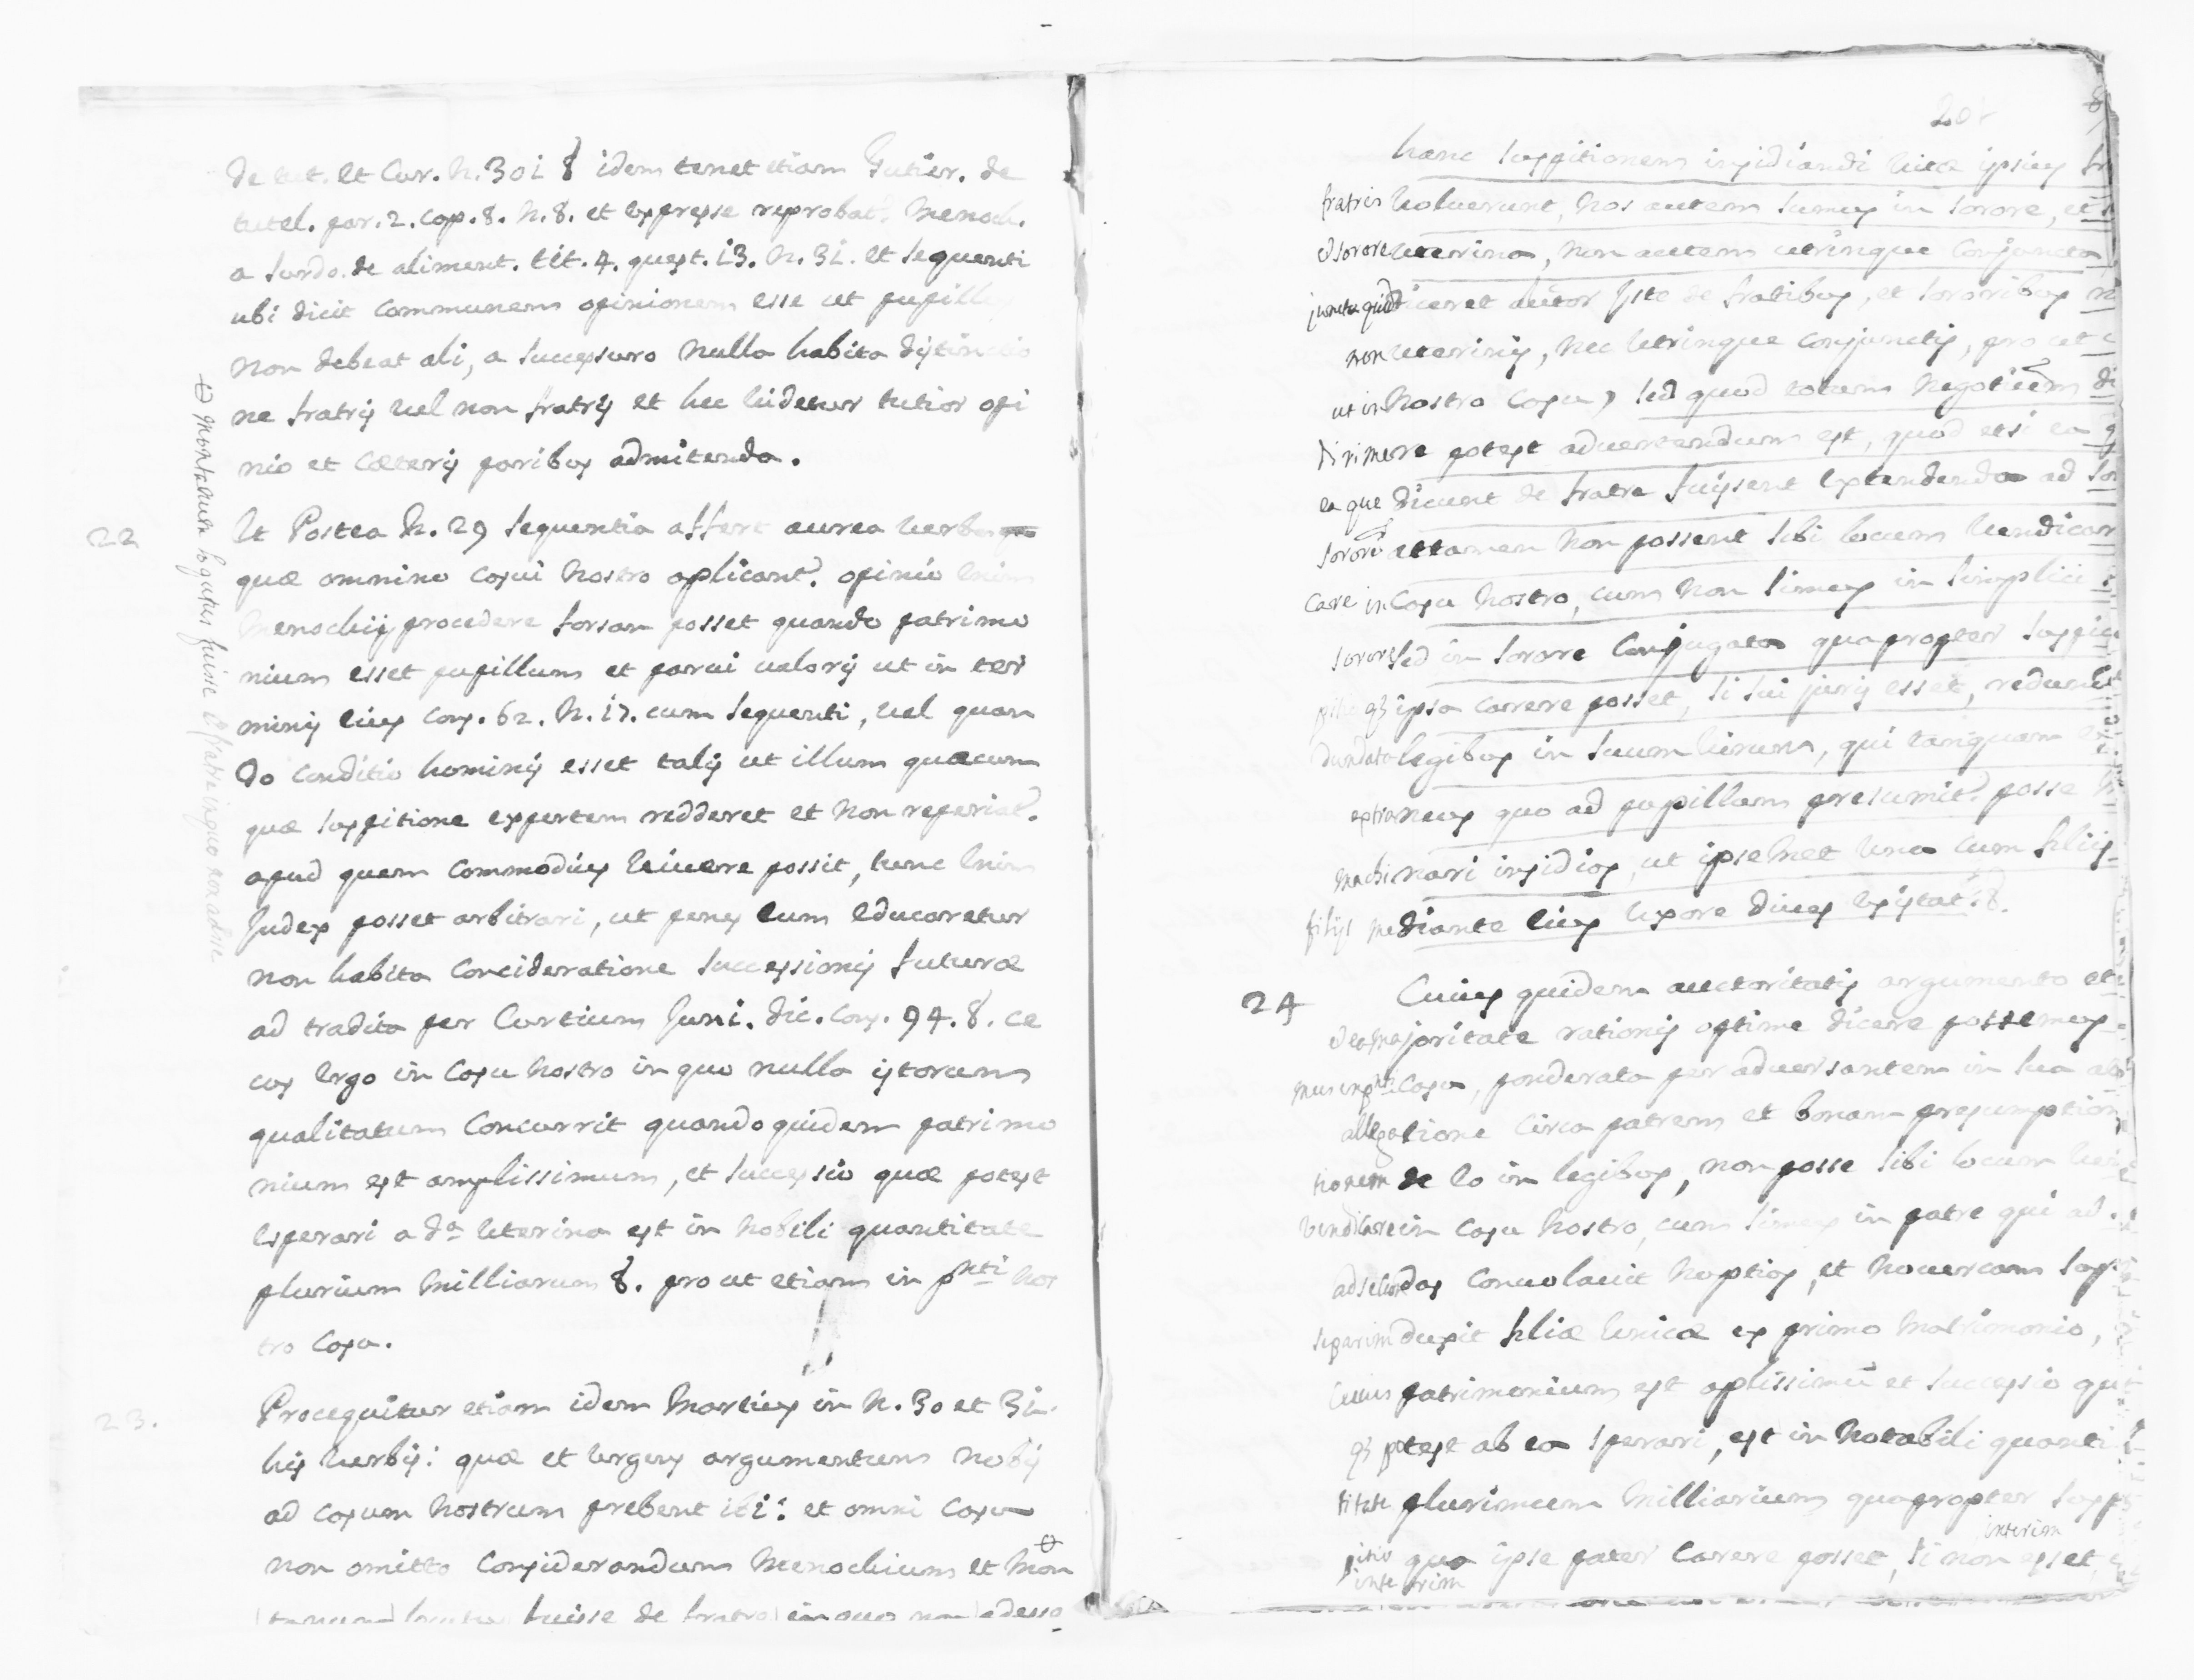 de tut. et Cur. n. 301 & idem tenet etiam Gutier. de
tutel. par. 2. cap. 8. n. 8. et expresse reprobat. Menoch.
a Surdo de aliment. tit. 4. quest. 13. n. 31. et sequenti
ubi dicit communem opinionem esse ut pupillus
non debeat ali, a successuro nulla habita distinctio
ne fratris vel non fratris et hec videtur tutior opi
nio et cæteris paribus admitenda.
22 Et Postea n. 29 sequentia affert aurea verba
quæ omnino casui nostro aplicant. opinio enim
Menochij procedere forsan posset quando patrimo
nium esset pupillum et parvi valoris ut in ter
minis eius cons. 62. n. 17. cum sequenti, vel quan
do conditio hominis esset talis ut illum quacum
quæ suspitione expertem redderet et non reperiat.
apud quem commodius vivere possit, tunc enim
Judex posset arbitrari, ut penes eum educaretur
non habita concideratione successionis futuræ
ad tradita per Curtium Juni. dic. cons. 94. &. ce
cus ergo in casu nostro in quo nulla istorum
qualitatum concurrit quando quidem patrimo
nium est amplissimum, et successio quæ potest
esperari a da uterina est in nobili quantitate
plurium milliarum &. pro ut etiam in pnti nos
tro casu.
23. Procequitur etiam idem Martius in n. 30 et 31.
his verbis: quæ et urgens argumentum nobis
ad casum nostrum prebent ibi: et omni casu
non omitto considerandum Menochium et Mon
fuisse de fratre in quo non adesse
Montanum loqutus fuisse de fratre in quo non adsse
201
hanc suspitionem insidiandi vitæ ipsius
fratris voluerunt, nos autem sumus in sorore, et
et sorore uterina, non autem utrinque conjuncta
juncta quid diceret autor iste de fratibus, et sororibus
non uterinis, nec utrinque conjunctis, pro ut
ut in nostro casu, sed quod totum negotium di
dirimere potest advertendum est, quod etsi ea
ea que dicunt de fratre fuissent extendenda ad sor
sorore attamen non possent sibi locum vendicar
care in casu nostro, cum non simus in simplici
sorore sed in sorore conjugata quapropter suspici
q3 ipsa carere posset, si sui juris esset, redund
dundata legibus in suum virum, qui tanquam
extraneus quo ad pupillum presumit. posse
machi nari insidias, ut ipsemet una cum filijs
filijs mediante eius uxore dives existat. &.
24 Cuius quidem auctoritatis argumento et
et ea majoritate rationis optime dicere possemus
mus in pnti casu, ponderata per adversantem in sua
allegatione circa patrem et bonam presumption
tionem de eo in legibus, non posse sibi locum ven
vendicare in casu nostro, cum simus in patre qui ad
ad secundas convolavit noptias, et novercam sup
duxit filiæ unicæ ex primo matrimonio,
cuius patrimonium est aplissimũ et successio que
q3 potest ab ea sperari, est in notabili quanti
titate plurimum milliarium quapropter susp
itio qua ipse pater carere posset, si non esset
interim